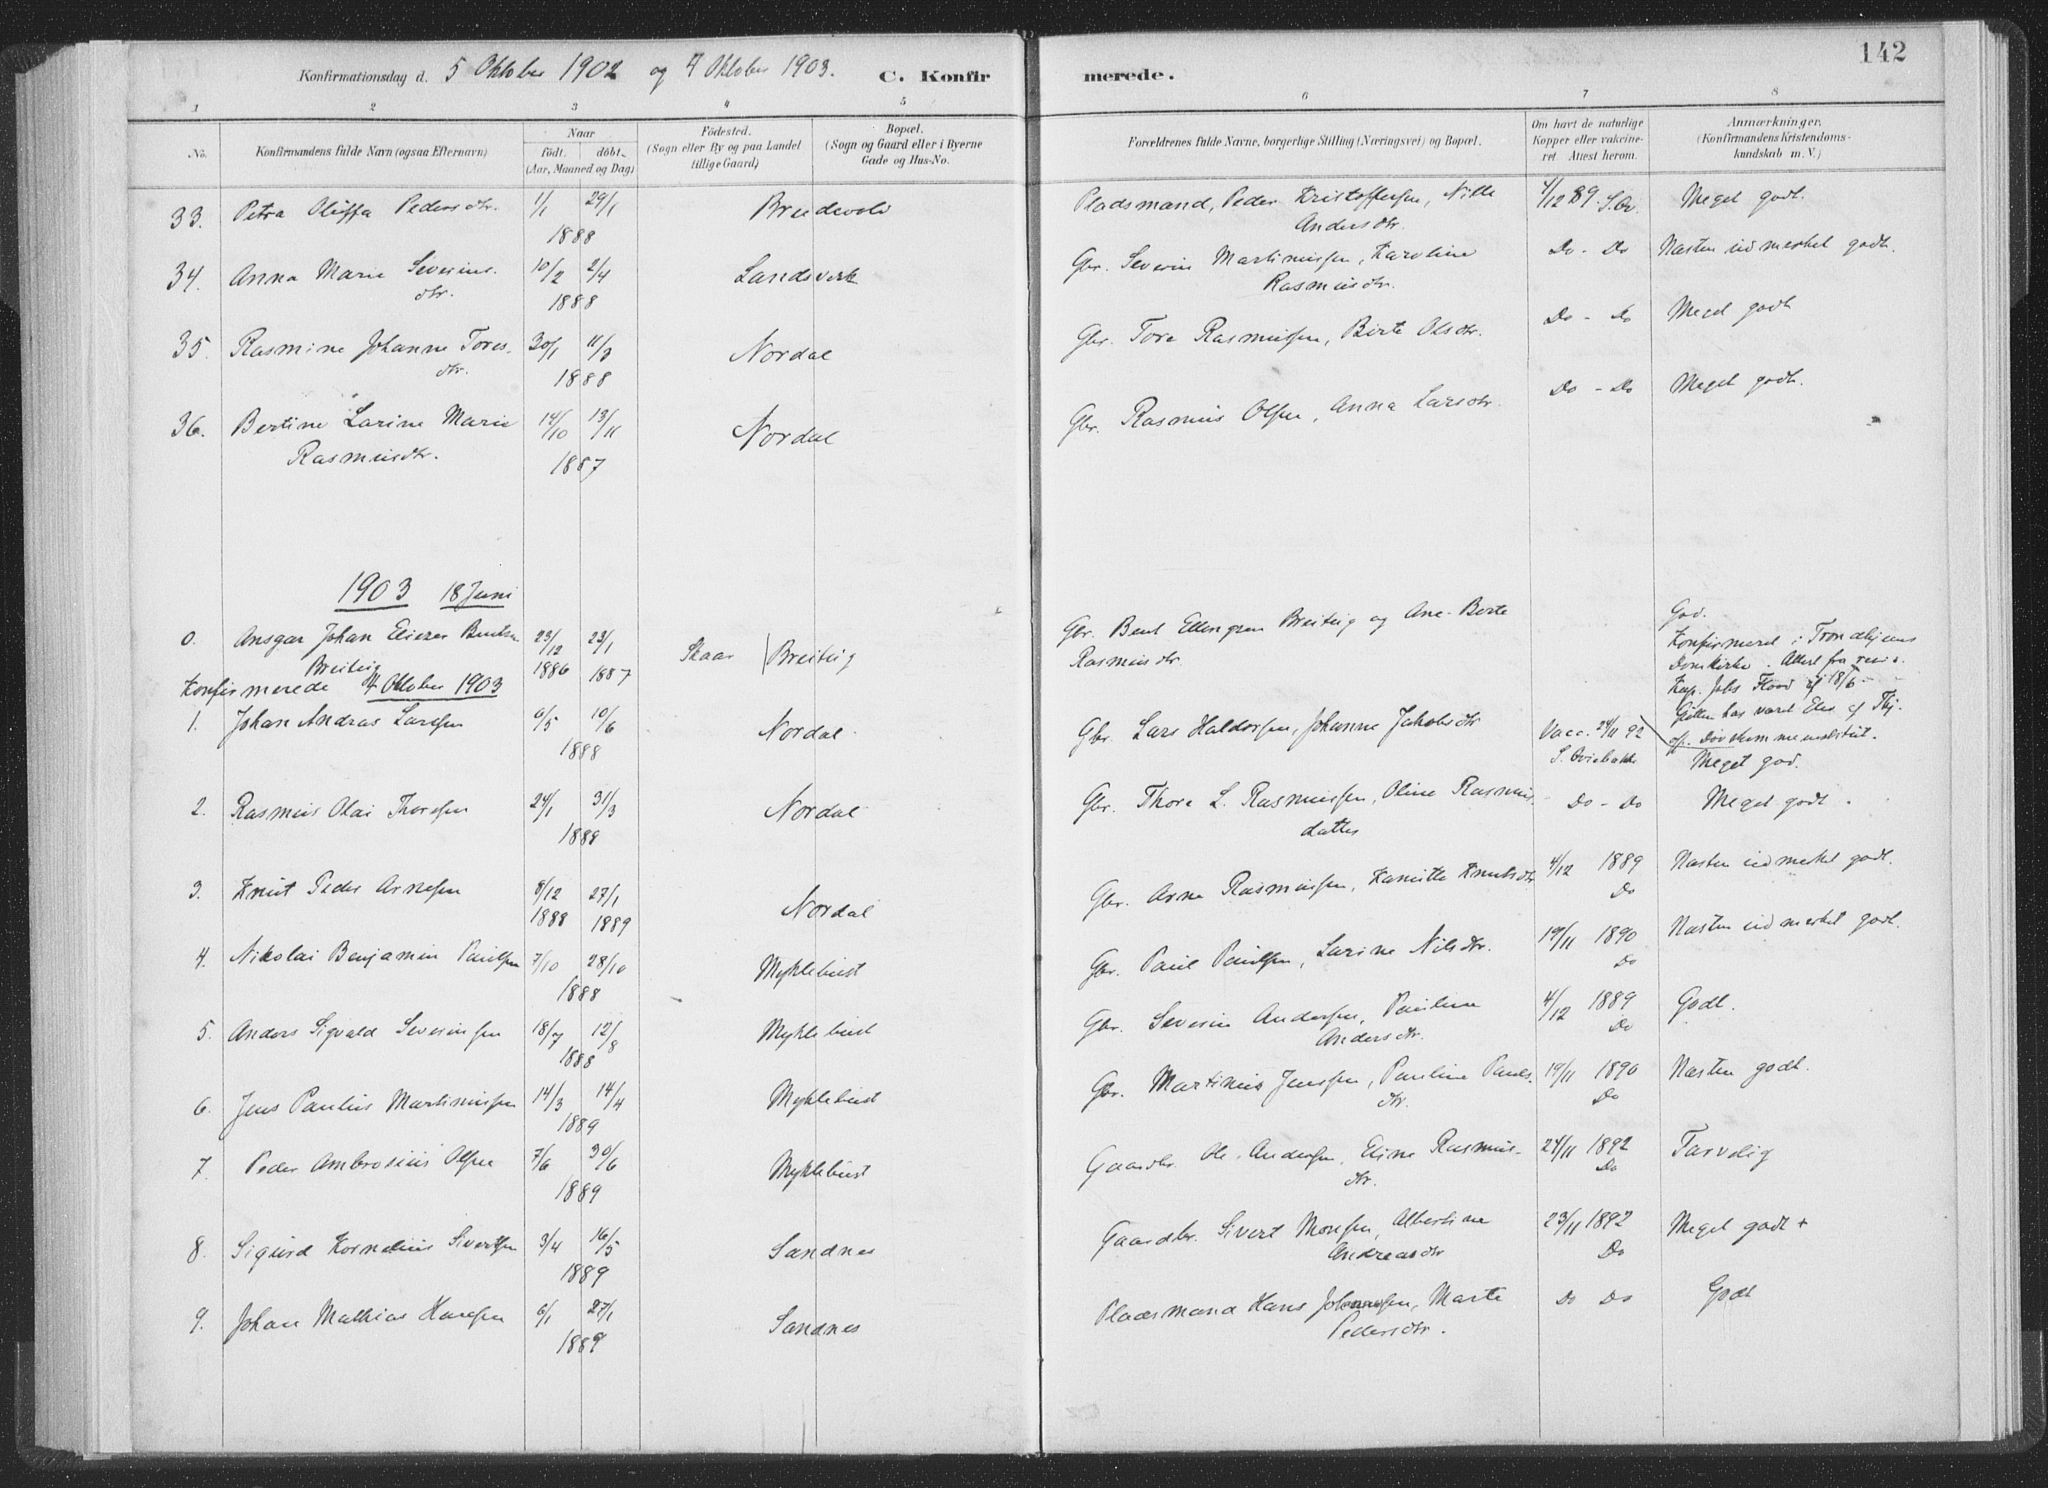 142
Konfirmationsdag d. 5 Oktober 1902 og 4 Oktober 1903. C. Konfirmerede.
1 2 3 4 5 6 7 8
No. Konfirmandens fulde Navn (ogsaa Efternavn) Naar födt. döbt. (Aar, Maaned og Dag) Födested. (Sogn eller By og paa Landet tillige Gaard) Bopæl. (Sogn og Gaard eller i Byerne Gade og Hus-No. Forældrenes fulde Navne, borgerlige Stilling (Næringsvei) og Bopæl. Om havt de naturlige Kopper eller vakcineret Attest herom. Anmærkninger. (Konfirmandens Kristendomskundskab m. V.)
33. Petra Oluffa Pedersdtr. 1/1 29/1 Bredevold Pladsmand, Peder Kristoffersen, Nille 4/12 89. Meget godt.
1888 Andersdtr.
34. Anna Marie Severins- 10/2 2/4 Landsverk Gbr. Severin Martinussen, Karoline Do - Do Næsten udmerket godt.
dtr. 1888 Rasmusdtr.
35. Rasmine Johanne Tores- 30/1 11/3 Nordal Gbr. Tore Rasmussen, Birte Olsdtr. Do - Do Meget godt
dtr. 1888
36. Bertine Larine Marie 14/10 13/11 Nordal Gbr. Rasmus Olsen, Anna Larsdtr. Do - Do Meget godt.
Rasmusdtr. 1887
1903 18 Juni
0. Ansgar Johan Eliezer Bentsen 23/12 23/1 Skaar Breiteig Gbr. Bent Ellingsen Breiteig og Ane-Berte God.
Breiteig 1886 1887 Rasmusdtr. Konfirmeret i Trondhjems
Domkirke. Attest fra resid.
Kap. Johs Flood af 18/6
Konfirmerede 4 Oktober 1903 Gutten har været Elev af Thj.
Døvstummeinstitut.
1. Johan Andras Larsen 6/5 10/6 Nordal. Gbr. Lars Haldorsen, Johanne Jakobsdtr Vacc. 24/11 92 Meget god.
1888
2. Rasmus Olai Thoresen 24/1 31/3 Nordal Gbr. Thore L. Rasmussen, Oline Rasmus- Do - Do Meget godt.
1889 datter
3. Knut Peder Arnesen 8/12 27/1 Nordal Gbr. Arne Rasmussen, Kamilla Knutsdtr 4/12 1889 Næsten udmerket godt.
1888 1889 Do
4. Nikolai Benjamin Paulsen 7/10 28/10 Myklebust Gbr. Paul Paulsen, Larine Nilsdtr. 19/11 1890 Næsten udmerket godt.
1888 Do
5. Anders Sigvald Severinsen 18/7 12/8 Myklebust Gbr. Severin Andersen, Pauline 4/12 1889 Godt.
1888 Andersdtr. Do
6. Jens Paulus Martinussen 14/3 14/4 Myklebust Gbr. Martinus Jenssen, Pauline Pauls- 19/11 1890 Næsten godt.
1889 dtr. Do
7. Peder Ambrosius Olsen 7/6 30/6 Myklebust Gaardbr. Ole Andersen, Eline Rasmus- 24/11 1892 Tarvelig
1889 dtr. Do
8. Sigurd Kornelius Sivertsen 3/4 16/5 Sandnes Gaardbr. Sivert Monsen, Albertine 23/11 1892 Meget godt +
1889 Andreasdtr Do
9. Johan Mathias Hansen 6/1 27/1 Sandnes Pladsmand Hans Johannessen, Marte Do Do Godt
1889 Pedersdtr.